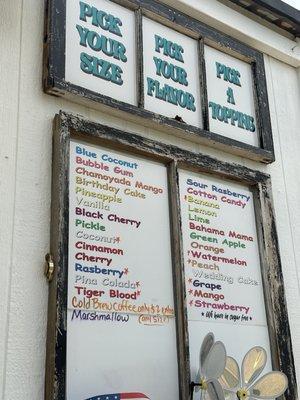 PICK
YOUR
SIZE
PICK
YOUR
FLAVOR
PICK
A
TOPPING
Blue Coconut
Bubble Gum
Chamoyada Mango
Birthday Cake
Pineapple
Vanilla
Black Cherry
Pickle
Coconut*
Cinnamon
Cherry
Rasberry*
Pina Colada*
Tiger Blood*
Cold Brew Coffee only $2 extra
Marshmallow (any size)
Sour Rasberry
Cotton Candy
*Banana
Lemon
Lime
Bahama Mama
Green Apple
Orange
*Watermelon
*Peach
Wedding Cake
*Grape
*Mango
*Strawberry
*We have in sugar free*